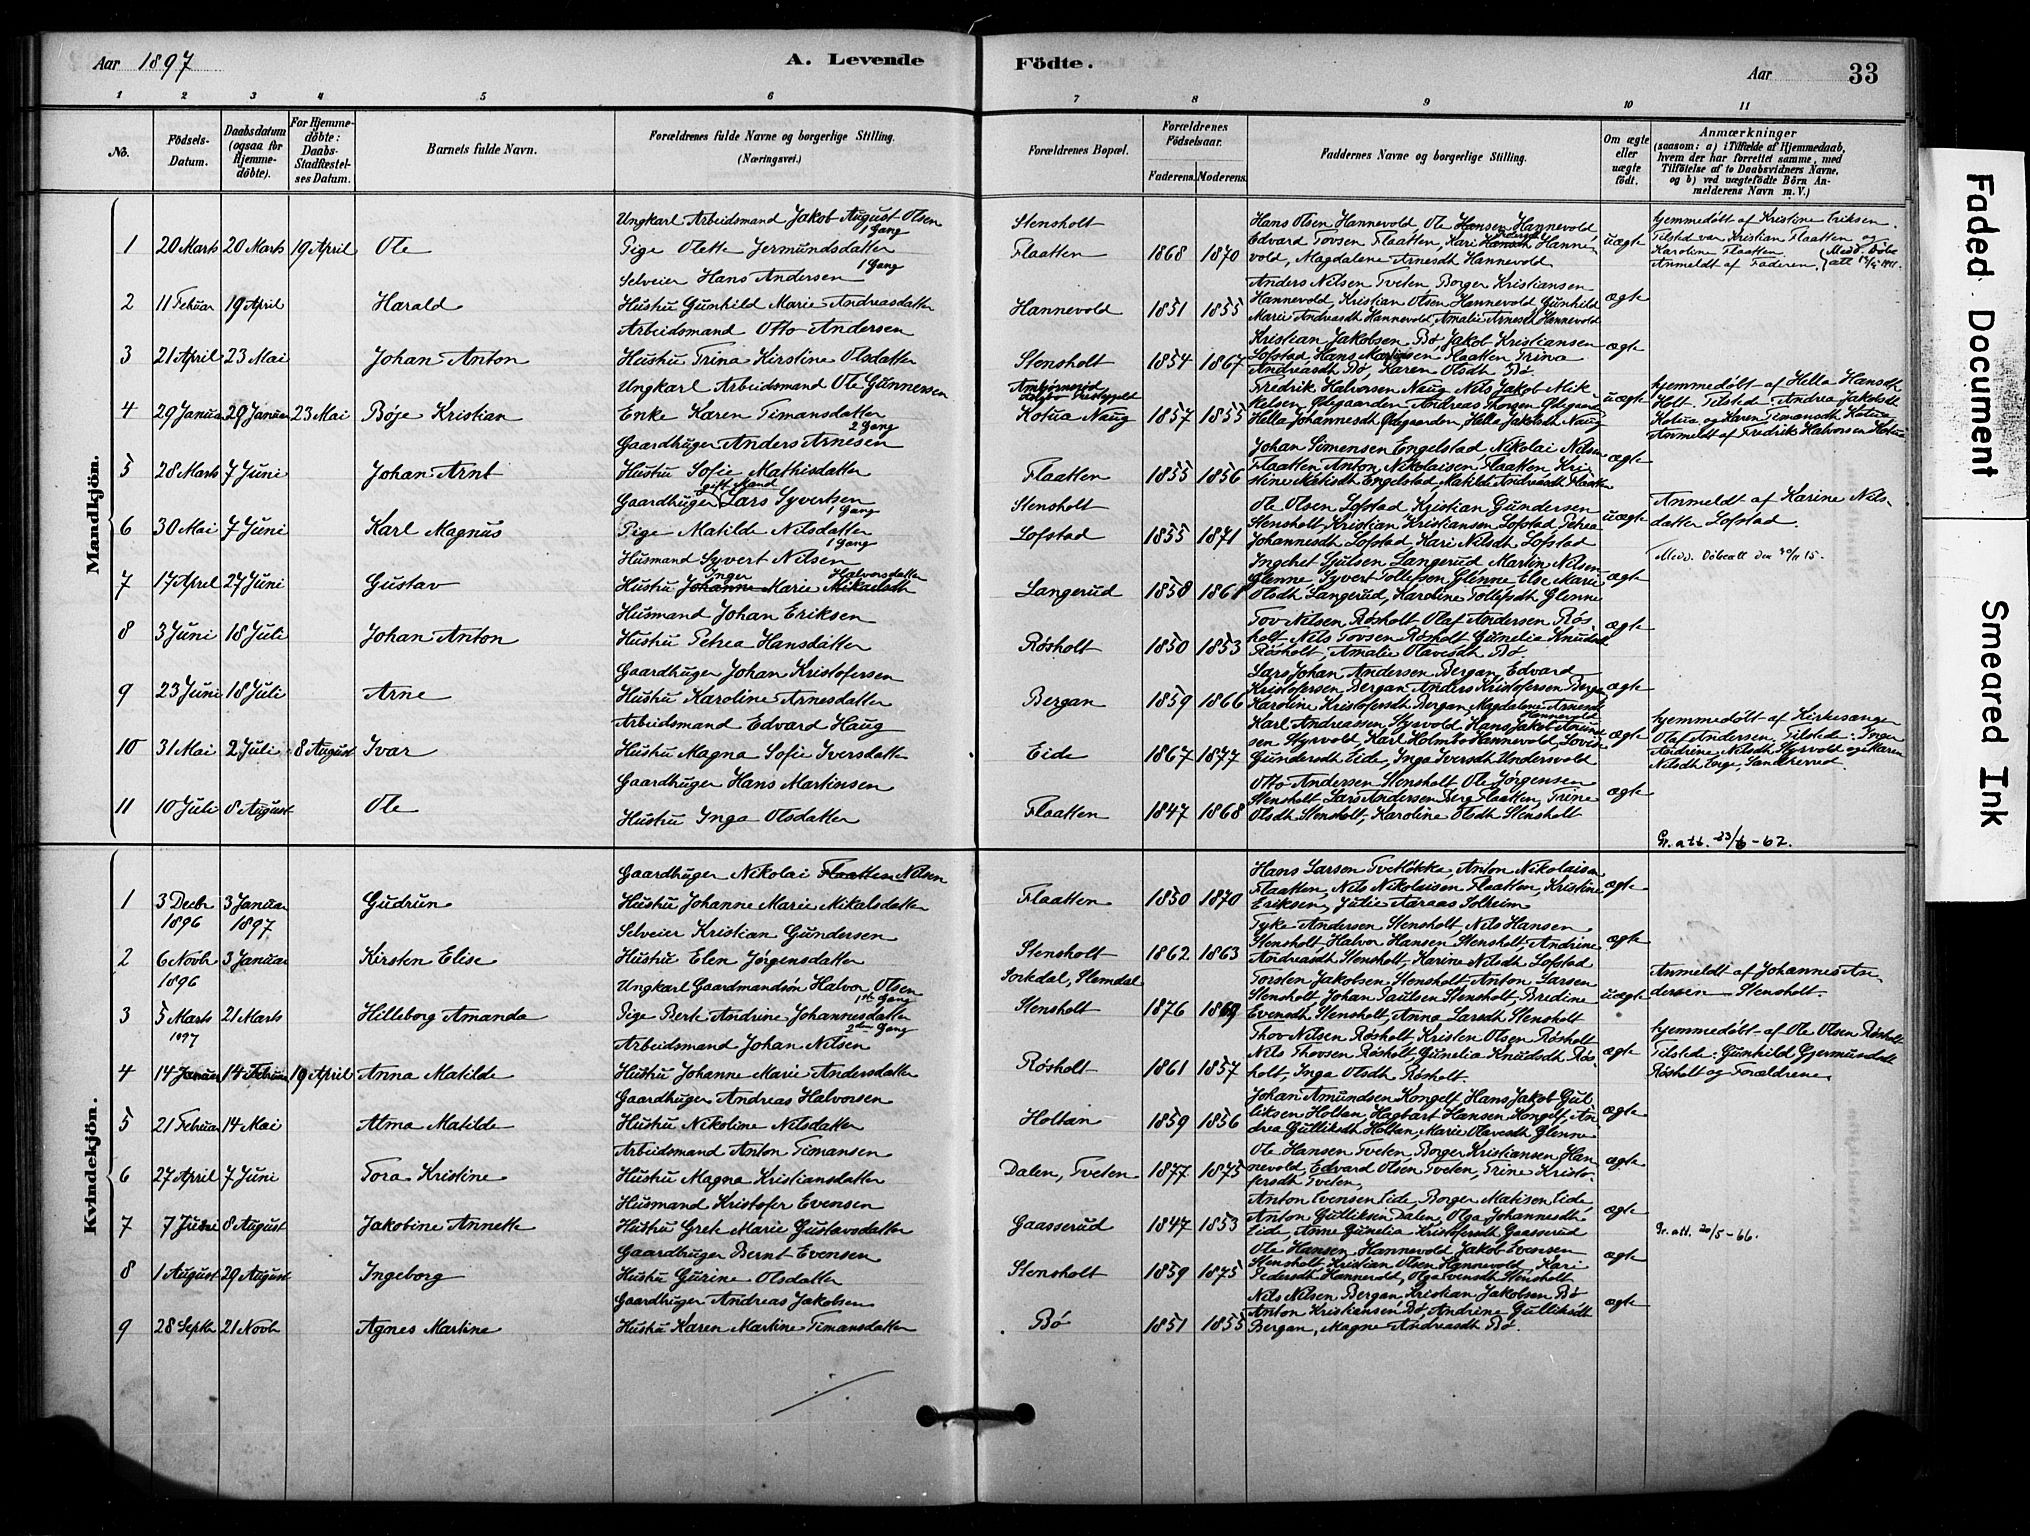 Aar 1897
A. Levende
Födte.
Aar
33
1 2 3 4 5 6 7 8 9 10 11
No.
Födsels-Datum.
Daabsdatum (ogsaa for Hjemme-döbte).
For Hjemme-döbte: Daabs-Stadfæstel-ses Datum.
Barnets fulde Navn.
Forældrenes fulde Navne og borgerlige Stilling.
(Næringsvei.)
Forældrenes Bopæl.
Forældrenes Födselsaar.
Faderens. Moderens.
Faddernes Navne og borgerlige Stilling.
Om ægte eller uægte födt.
Anmærkninger
(saasom: a) i Tilfælde af Hjemmedaab, hvem der har forrettet samme, med Tilföielse af to Daabsvidners Navne, og b) ved uægtefödte Börn An-melderens Navn m. V.)
Mandkjön.
1 20 Marts 20 Marts 19 April Ole
Ungkarl Arbeidsmand Jakob August Olsen 1 Gang
Pige Olette Jermundsdatter 1 Gang
Stensholt
Flaatten 1868 1870
Hans Olsen Hannevold Ole Hansen Hannevold
Edvard Tovsen Flaatten, Kari Hansdt Hanne-
vold, Magdalene Arnesdt Hannevold
uægte
hjemmedøbt af Kristine Eriksen.
Tilsted var Kristian Flaatten og
Karoline Flaatten.
Anmeldt af Faderen.
2 11 Februar 19 April Harald
Selveier Hans Andersen
Hustru Gunhild Marie Andreasdatter
Hannevold 1851 1855
Anders Nilsen Tveten, Borger Kristiansen
Hannevold, Kristian Olsen Hannevold Gunhild
Marie Andreasdt Hannevold, Amalie Arnesdt Hannevold
ægte
3 21 April 23 Mai Johan Anton
Arbeidsmand Otto Andersen
Hustru Trina Kirstine Olsdatter
Stensholt 1854 1867
Kristian Jakobsen Bø Jakob Kristiansen
Lofstad Hans Martinsen Flaatten Trina
Andreasdt Bø, Karen Olsdt Bø
ægte
4 29 Januar 29 Januar 23 Mai Bøje Kristian
Ungkarl Arbeidsmand Ole Gunnersen
Enke Karen Timansdatter 2 Gang
Kotua Naug 1857 1855
Fredrik Halvorsen Naug Nils Jakob Mik-
kelsen Ødegaarden Andreas Thorsen Ødegaarden
Hella Johannesdt Ødegaarden, Hella Jakobsdt Naug
uægte
hjemmedøbt af Hella Hansdt
Holt. Tilsted: Andrea Jakobsdt
Kotua og Karen Timansdt Kotua
Anmeldt af Fredrik Halvorsen Kotua
5 28 Marts 7 Juni Johan Arnt
Gaardbruger Anders Arnesen
Hustru Sofie Mathisdatter
Flaatten 1855 1856
Johan Simensen Engelstad, Nikolai Nilsen
Flaatten Anton Nikolaisen Flaatten, Kri-
stine Matisdt Engelstad Matilde Andreasdt Flaatten
ægte
6 30 Mai 7 Juni Karl Magnus
gift Mand
Gaardbruger Lars Syvertsen 1 Gang
Pige Matilde Nilsdatter 1 Gang
Stensholt
Lofstad 1855 1871
Ole Olsen Lofstad Kristian Gundersen
Stensholt, Kristian Kristiansen Lofstad Petrea
Johannesdt Lofstad Kari Nilsdt Lofstad
uægte
Anmeldt af Karine Nils-
datter Lofstad.
7 17 April 27 Juni Gustav
Husmand Syvert Nilsen
Inger Halvorsdatter
Hustru Johanne Marie Mikaelsdt
Langerud 1858 1861
Ingebret Gulsen Langerud Martin Nilsen
Glenne Syvert Tollefsen Glenne Else Marie
Olsdt Langerud, Karoline Tollefsdt Glenne
ægte
8 3 Juni 18 Juli Johan Anton
Husmand Johan Eriksen
Hustru Petrea Hansdatter
Røsholt 1850 1853
Tov Nilsen Røsholt Olaf Andersen Røs-
holt Nils Tovsen Røsholt Gunelia Knudsdt
Røsholt, Amalie Olavesdt Bø
ægte
9 23 Juni 18 Juli Arne
Gaardbruger Johan Kristofersen
Hustru Karoline Arnesdatter
Bergan 1859 1866
Lars Johan Andersen Bergan, Edvard
Kristofersen Bergan Anders Kristofersen Bergan
Karoline Kristofersdt Bergan, Magdalene Arnesdt Hannevold
ægte
10 31 Mai 2 Juli 8 August Ivar
Arbeidsmand Edvard Haug
Hustru Magna Sofie Iversdatter
Eide 1867 1877
Karl Andreassen Hysvold Hans Jakob Amund-
sen Hysvold Karl Holmbo Hannevold Lovise
Gundersdt Eide, Inga Iversdt Undersvold
ægte
hjemmedøbt af Kirkesanger
Olaf Andersen. Tilstede: Inger
Andrine Nilsdt Hysvold og Maren
Nilsdt Enge, Sandherred.
11 10 Juli 8 August Ole
Gaardbruger Hans Martinsen
Hustru Inga Olsdatter
Flaatten 1847 1868
Otto Andersen Stensholt Ole Jørgensen
Stensholt Lars Andersen Berg Flaatten, Trine
Olsdt Stensholt, Karoline Olsdt Stensholt
ægte
Gr. att. 23/6-62.
Kvindekjön.
1 3 Decbr 1896 3 Januar 1897 Gudrun
Gaardbruger Nikolai Flaatten Nilsen
Hustru Johanne Marie Mikalsdatter
Flaatten 1850 1870
Hans Larsen Tvetløkka, Anton Nikolaisen
Flaatten, Nils Nikolaisen Flaatten, Kristine
Eriksen, Julie Aaraas Solheim
ægte
2 6 Novbr 1896 3 Januar Kirsten Elise
Selveier Kristian Gundersen
Hustru Elen Jørgensdatter
Stensholt 1862 1863
Tyke Andersen Stensholt, Nils Hansen
Stensholt Halvor Hansen Stensholt Andrine
Andreasdt Stensholt, Karine Nilsdt Lofstad
ægte
3 5 Marts 1897 21 Marts Hilleborg Amanda
Ungkarl Gaardmandsøn Halvor Olsen 1ste Gang
Pige Berte Andrine Johannesdatter 2den Gang
Sørkdal, Slemdal
Stensholt 1876 1869
Torsten Jakobsen Stensholt Anton Larsen
Stensholt Johan Paulsen Stensholt Bredine
Evensdt Stensholt, Anna Larsdt Stensholt
uægte
Anmeldt af Johannes An-
dersen Stensholt.
4 14 Januar 14 Februar 19 April Anna Matilde
Arbeidsmand Johan Nilsen
Hustru Johanne Marie Andersdatter
Røsholt 1861 1857
Thov Nilsen Røsholt Kristen Olsen Røsholt
Nils Thovsen Røsholt Gunelia Knudsdt Røs-
holt, Inga Olsdt Røsholt.
ægte
hjemmedøbt af Ole Olsen Røsholt
Tilstede: Gunhild Gjermunsdatt
Røsholt og Forældrene.
5 21 Februar 14 Mai Alma Matilde
Gaardbruger Andreas Halvorsen
Hustru Nikoline Nilsdatter
Holtan 1859 1856
Johan Amundsen Kongelf, Hans Jakob Gul-
liksen Holtan, Hagbart Hansen Kongelf, An-
drea Gulliksdt Holtan, Marie Olavesdt Glenne
ægte
6 27 April 7 Juni Tora Kristine
Arbeidsmand Anton Timansen
Hustru Magna Kristiansdatter
Dalen, Tveten 1877 1875
Ole Hansen Tveten, Borger Kristiansen Han-
nevold, Edvard Olsen Tveten, Trine Kristo-
fersdt Tveten
ægte
7 7 Juni 8 August Jakobine Annette
Husmand Kristofer Evensen
Hustru Grete Marie Gustavsdatter
Gaasserud 1847 1853
Anton Evensen Eide, Borger Matisen Eide,
Anton Gulliksen Dalen, Olga Johannesdt
Eide, Anne Gunelia Kristofersdt Gaasserud
ægte
Gr. att. 20/5-66.
8 1 August 29 August Ingeborg
Gaardbruger Bernt Evensen
Hustru Gurine Olsdatter
Stensholt 1859 1875
Ole Hansen Hannevold, Jakob Evensen
Stensholt Kristian Olsen Hannevold, Kari
Pedersdt Hannevold, Olga Evensdt Stensholt
ægte
9 28 Septbr 21 Novbr Agnes Martine
Gaardbruger Andreas Jakobsen
Hustru Karen Martine Timansdatter
Bø 1851 1855
Nils Nilsen Bergan, Kristian Jakobsen Bø
Anton Kristiansen Bø, Andrine Gulliksdt
Bergan, Magne Andreasdt Bø.
ægte
Faded Document
Smeared Ink